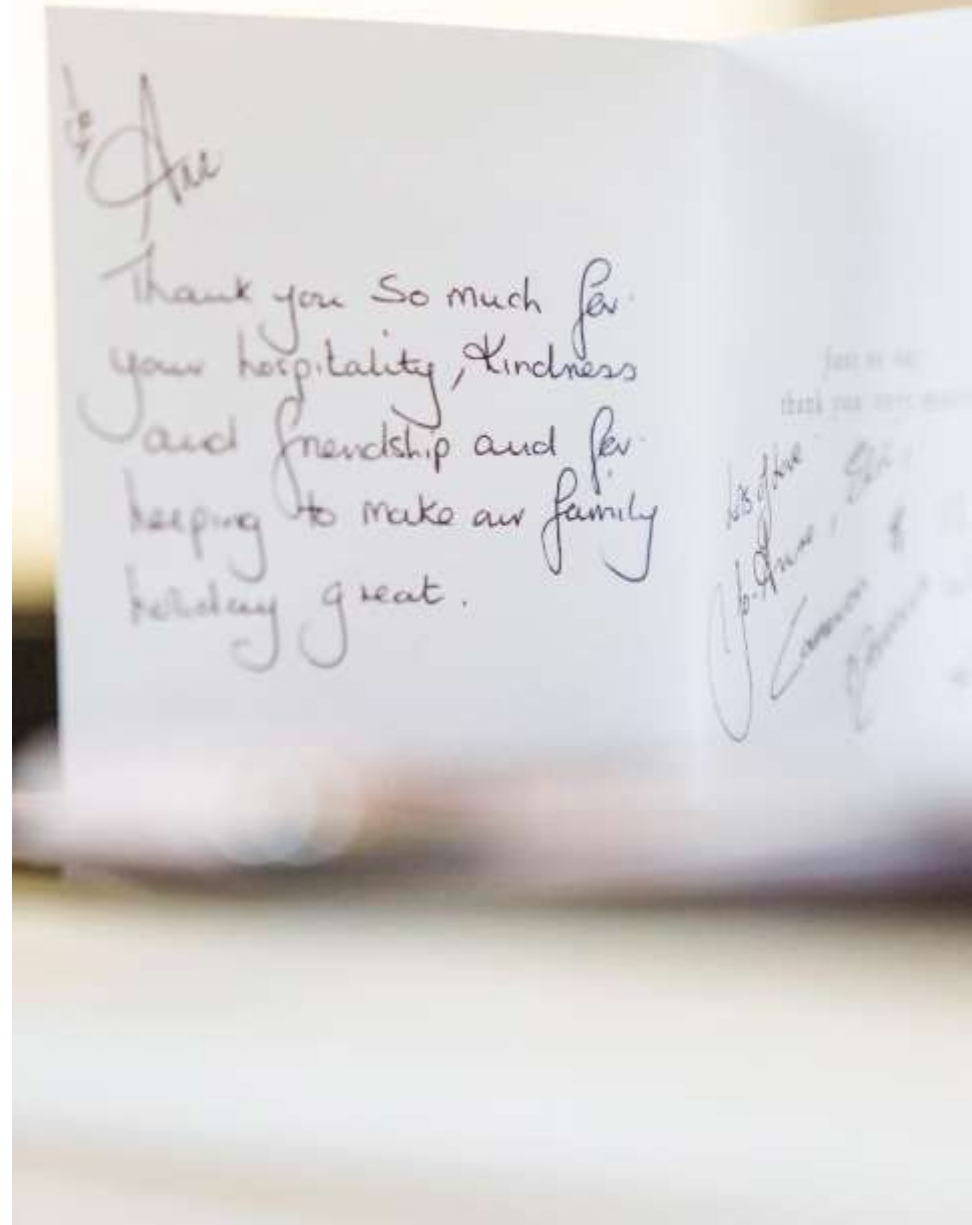 to
Thank you so much for
your hospitality, kindness
and friendship and for
helping to make our family
holiday great.
Just to say
thank you very much
Lots of love
Jo-Anne,
Cameron
&